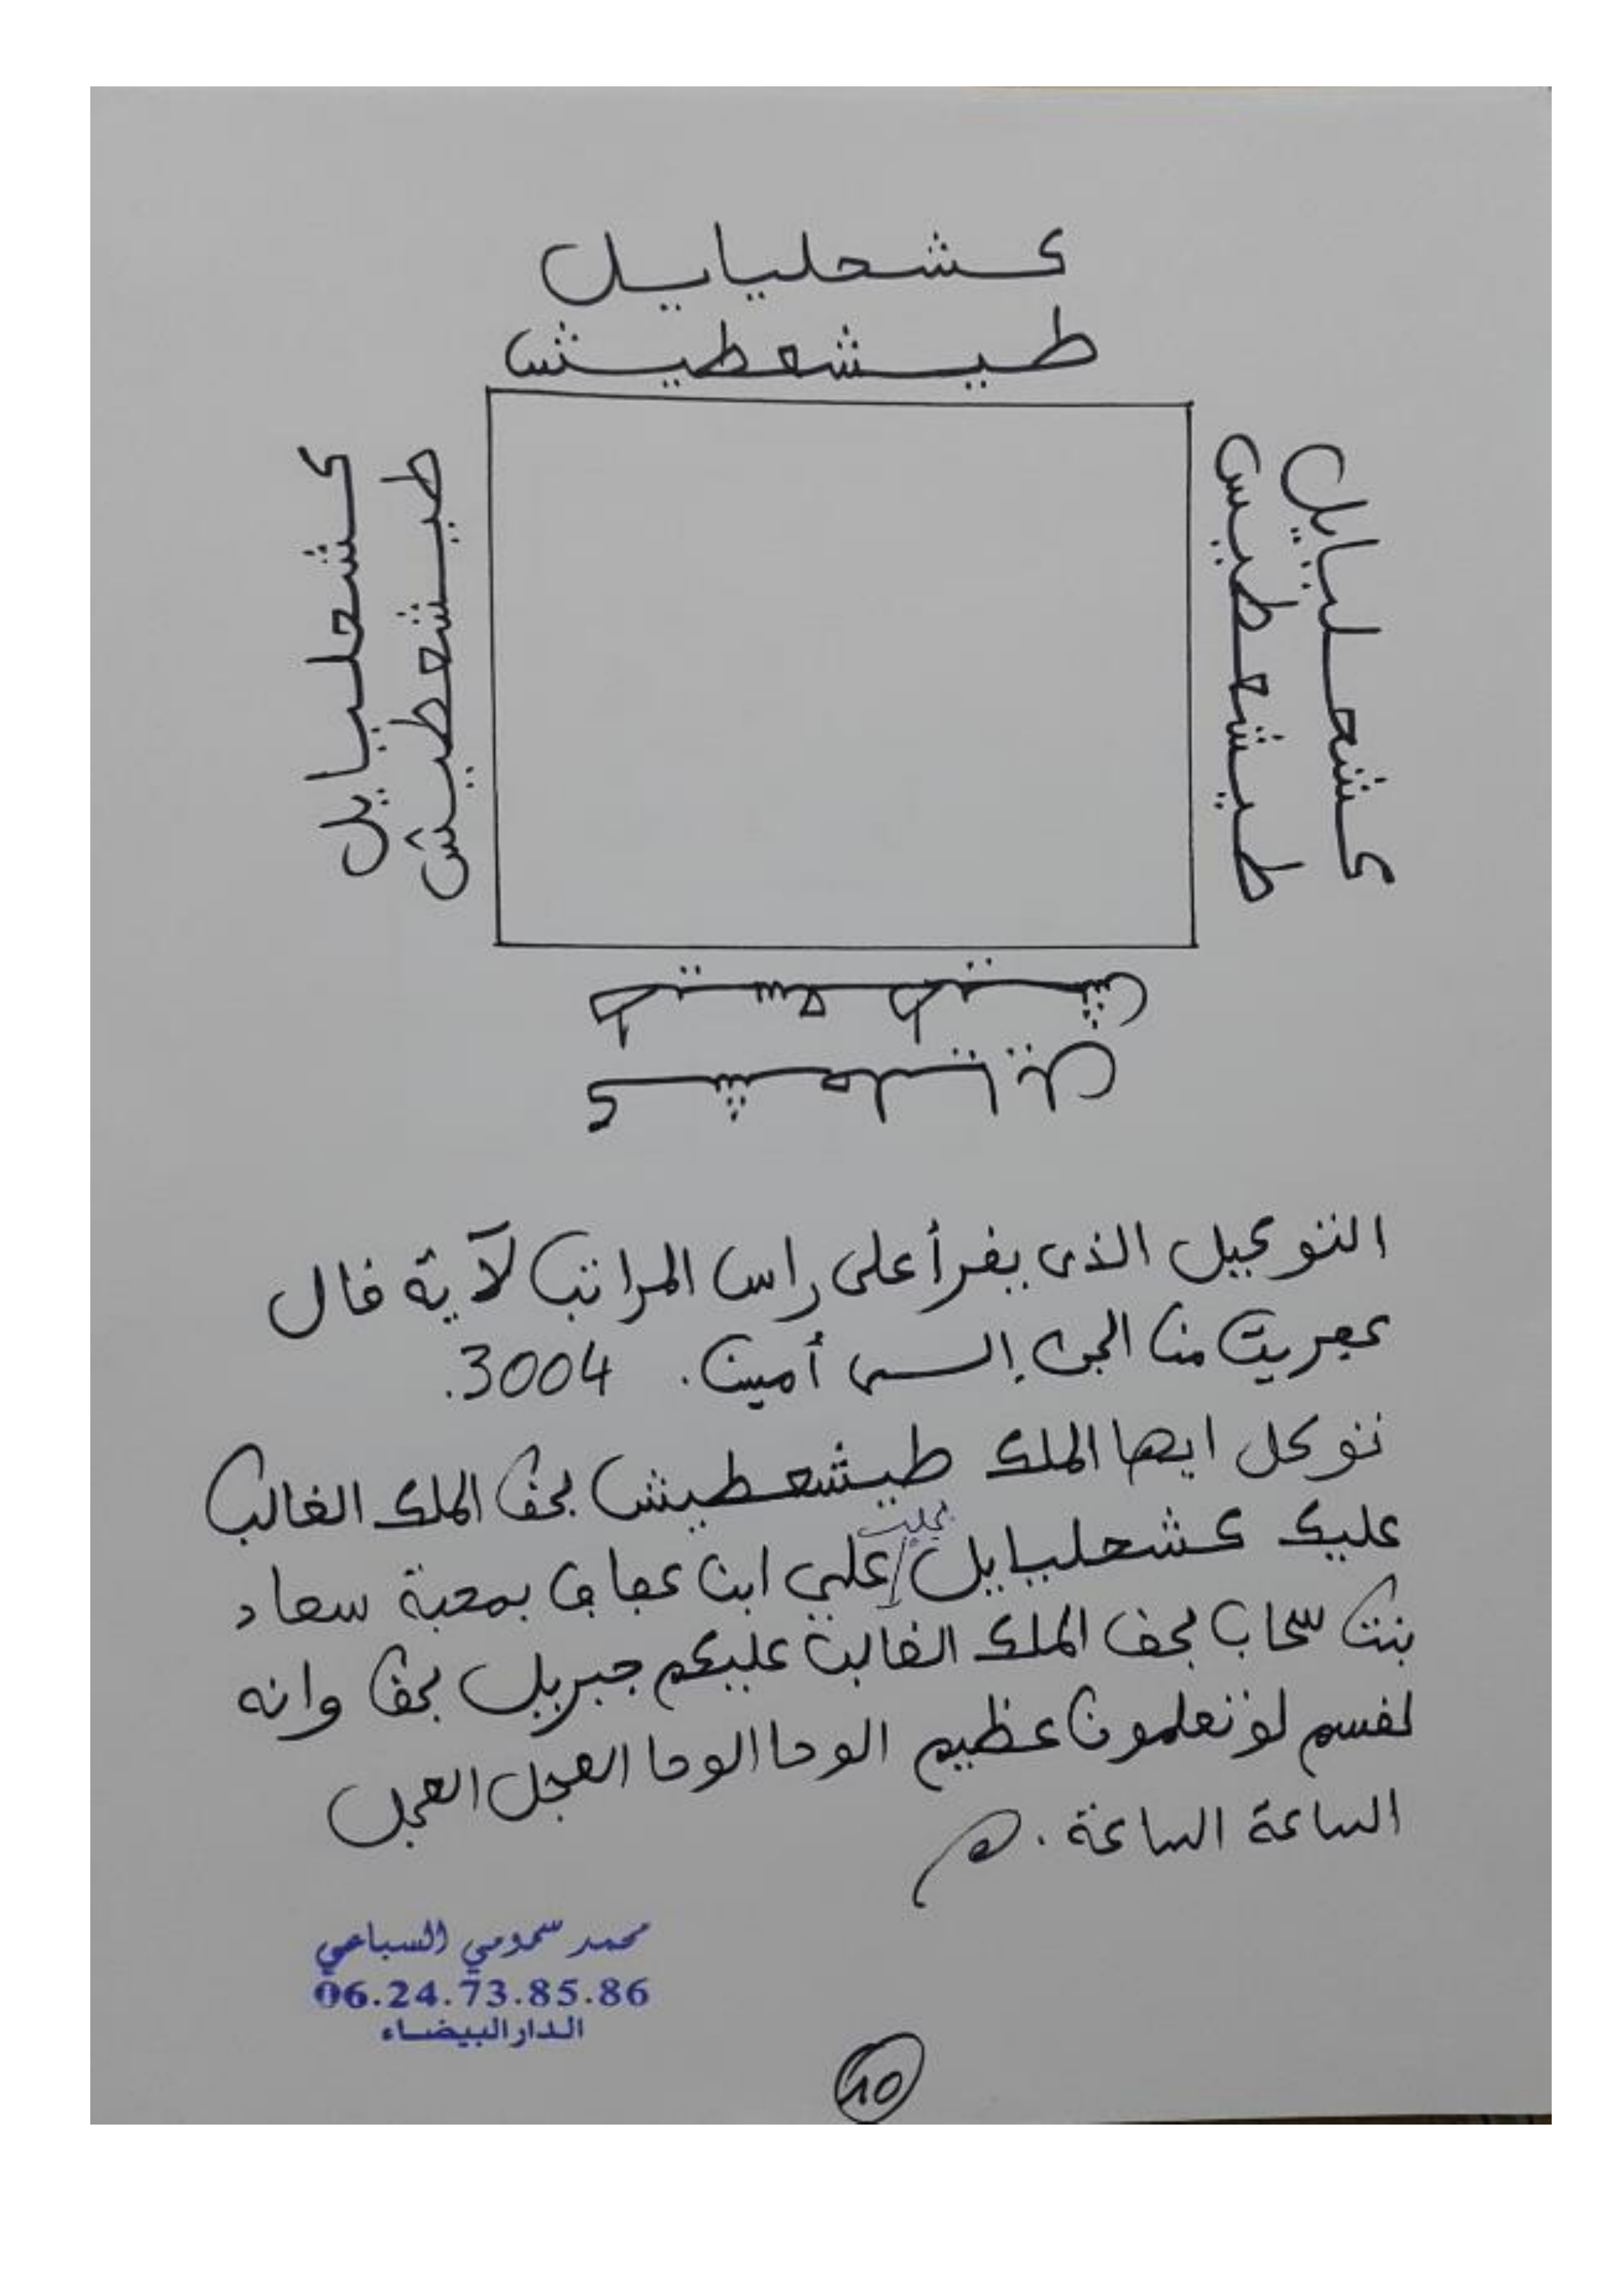 كشحليايل
طيشعطيش
كشحليايل
طيشعطيش
كشحليايل
طيشعطيش
طيشعطيش
كشحليايل
التوكيل الذي يقرأ على راس المراتب لآية قال
عفريت من الجن إلى أمين. 3004.
توكل ايها الملك طيشعطيش بحق الملك الغالب
عليك كشحليايل / علي ابن عفاف بمحبة سعاد
بجلب
بنت سحاب بحق الملك الغالب عليكم جبريل بحق وانه
لقسم لو تعلمون عظيم الوحا الوحا العجل العجل
الساعة الساعة.
محمد سمومي السباعي
06.24.73.85.86
الدار البيضاء
10